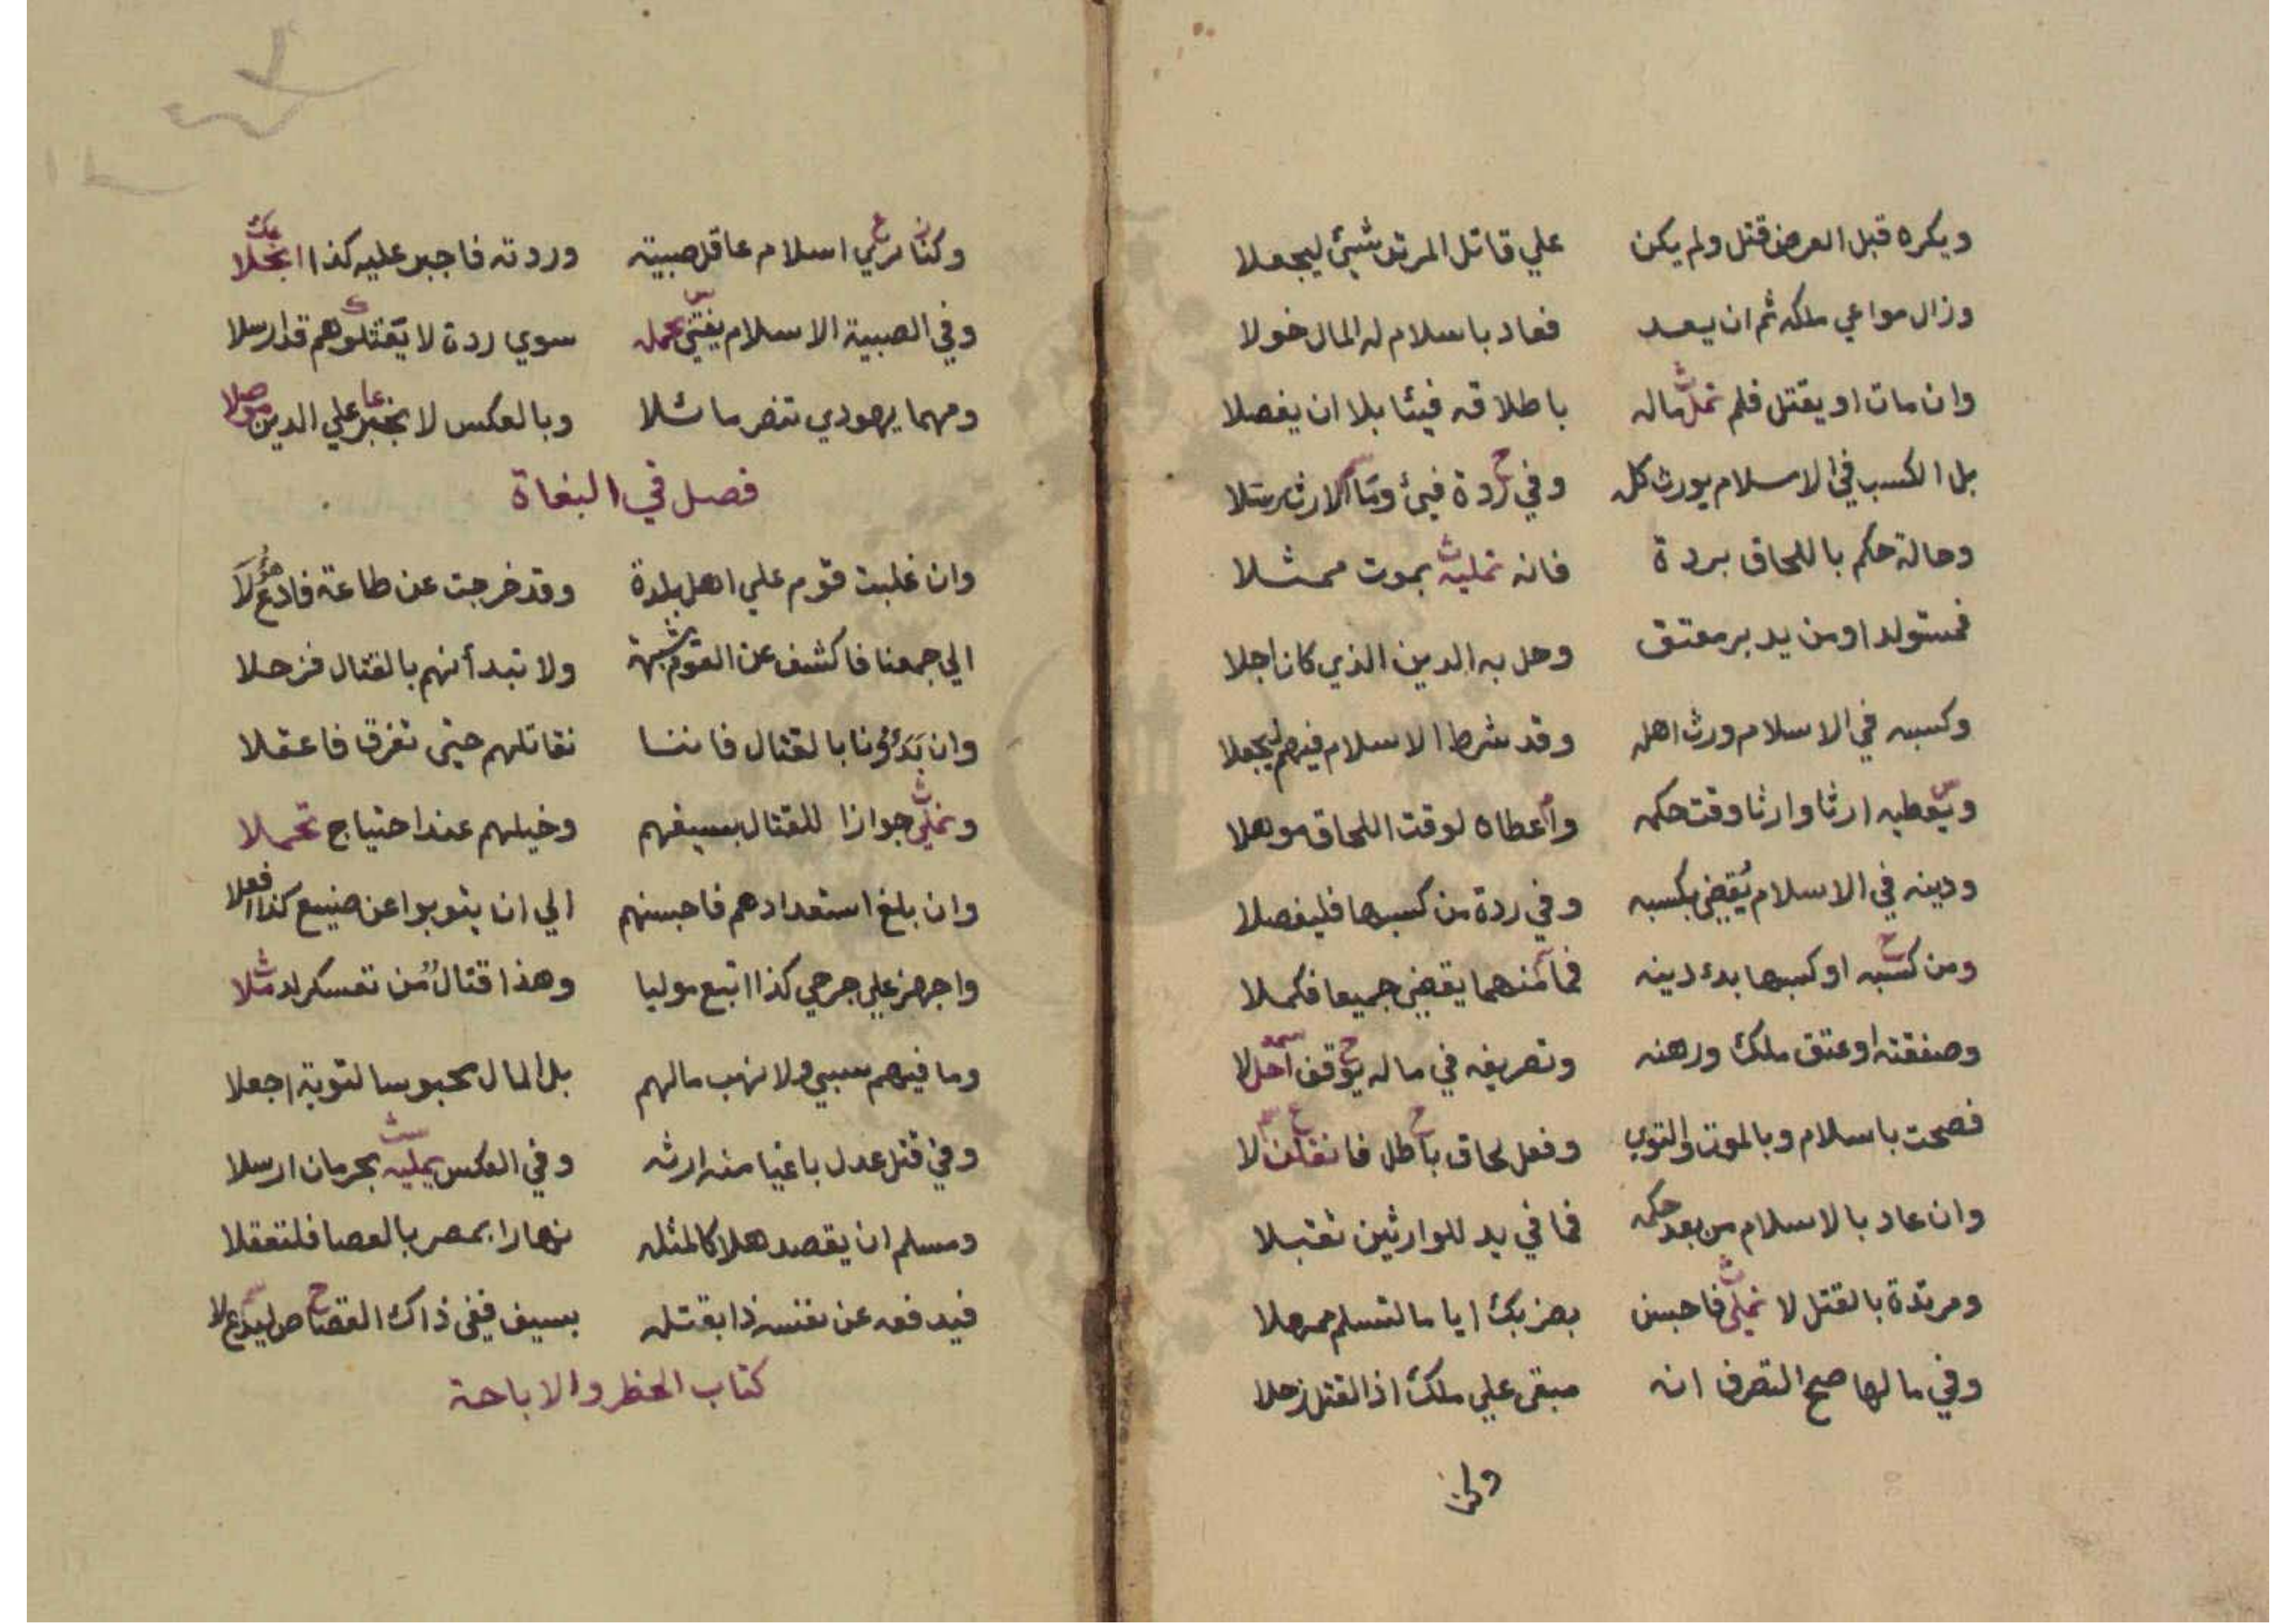 ويكره قبل العرض قتل ولم يكن علي قاتل المرتد شيئ ليجعلا
وزال مواعي ملكه ثم ان يعد فعاد باسلام له المال خولا
وان مات او يقتل فلم تملث ماله باطلاقه فيئا بلا ان يفصلا
بل الكسب في الاسلام يورث كله وفي ردة فيئ وما الارث رتلا
وحالة حكم باللحاق بردة فانه تمليه بموت ممثلا
فمستولد او من يدبر معتق وحل به الدين الذي كان اجلا
وكسبه في الاسلام ورث اهله وقد شرط الاسلام فيهم ليجعلا
ويعطيه ارثا وارثا وقت حكمه واعطاه لوقت اللحاق موهلا
ودينه في الاسلام يُقضى بكسبه وفي ردة من كسبها فليفصلا
ومن كسبه او كسبها بدء دينه فما منهما يقضى جميعا فكملا
وصفقته او عتق ملك ورهنه وتصريفه في ماله يوقف
فصحت باسلام وبالموت والتوي وفعل لحاق باطل
وان عاد بالاسلام من بعد حكمه فما في يد للوارثين تقبلا
ومرتدة بالقتل لا تملى فاحبسن بضربك اياما لتسلم ممهلا
وفي مالها صح التصرف انه مبقى علي ملك اذ القتل زحلا
وكنا نري اسلام عاقل صبيته وردته فاجبر عليه كذا انجلا
وفي الصبية الاسلام يفتى بحمله سوي ردة لا تقتلوهم قد ارسلا
ومهما يهودي تنصر ماثلا وبالعكس لا يجبر علي الدين موصلا
فصل في البغاة
وان غلبت قوم علي اهل بلدة وقد خرجت عن طاعة فادع هؤلَا
الي جمعنا فاكشف عن القوم شبهة ولا تبدأنهم بالقتال فزحلا
وان بَدَؤنا بالقتال فاننا نقاتلهم حتى تفرق فاعقلا
ونملى جوازا للقتال بسيفهم وخيلهم عند احتياج تحملا
وان بلغ استعدادهم فاحبسنهم الي ان يتوبوا عن صنيع كذا افعلا
واجهز علي جرحي كذا اتبع موليا وهذا قتال من تعسكر له مثلا
وما فيهم سبي ولا نهب مالهم بل المال محبوسا لتوبة اجعلا
وفي قتل عدل باغيا منه ارثه وفي العكس يمليه بحرمان ارسلا
ومسلم ان يقصد هلاكا لمثله نهارا بمصر بالعصا فلتعقلا
فيدفعه عن نفسه ذا بقتله بسيف ففى ذاك القصاص
كتاب الحظر والاباحة